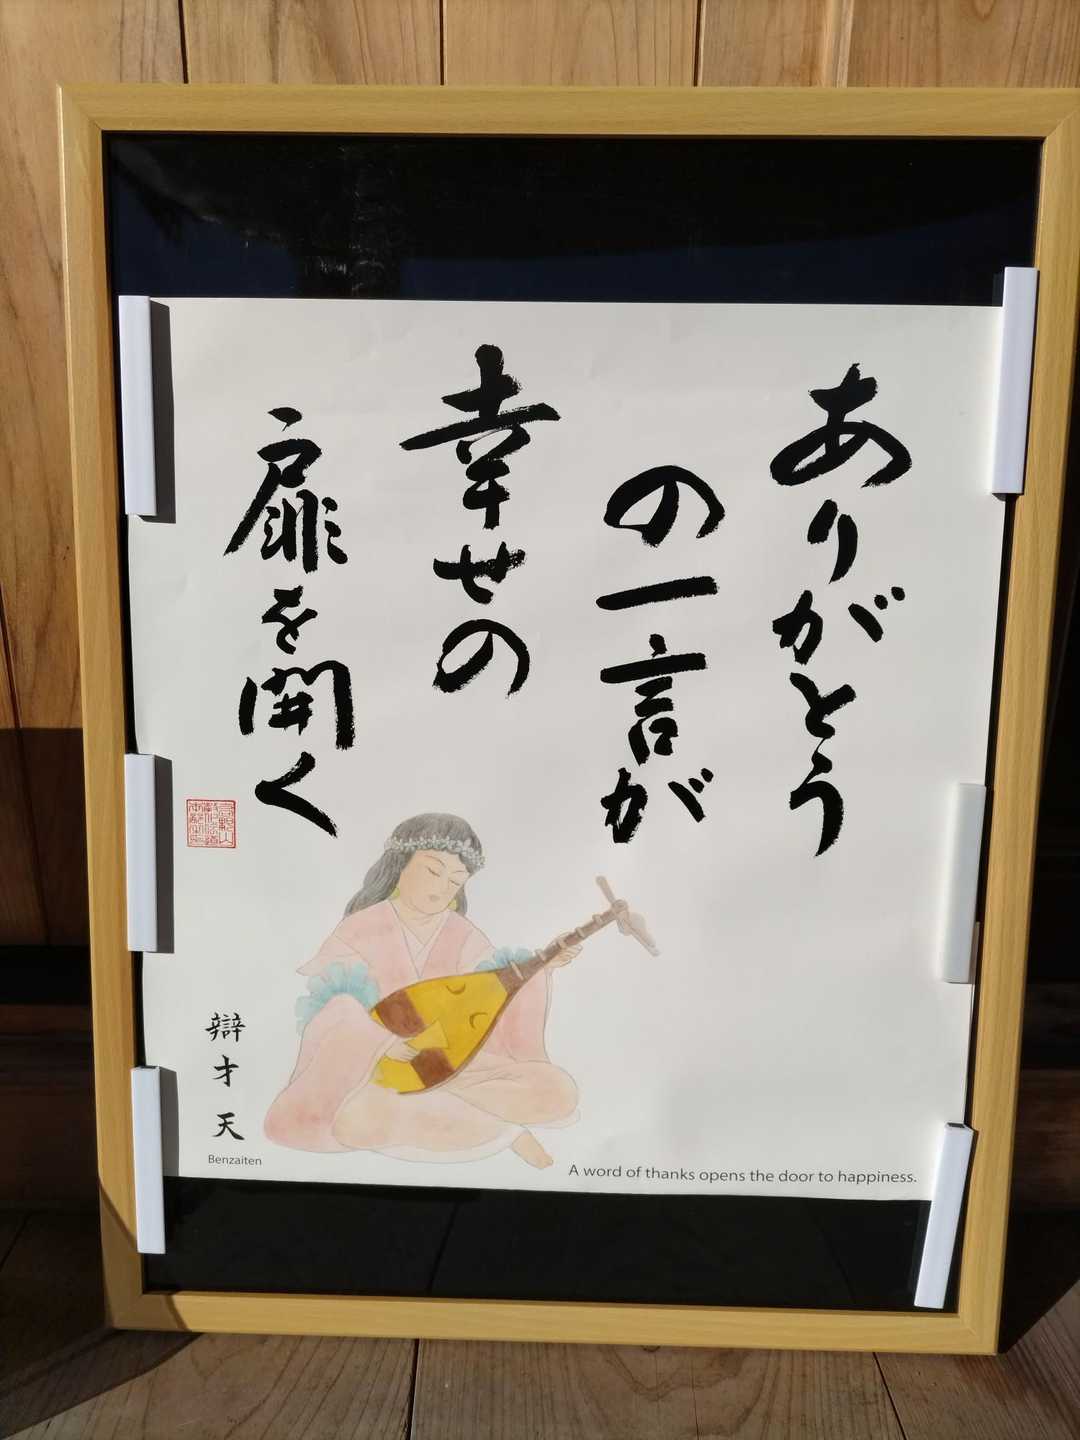 ありがとう
の一言が
幸せの
扉を開く
辯才天
Benzaiten
A word of thanks opens the door to happiness.